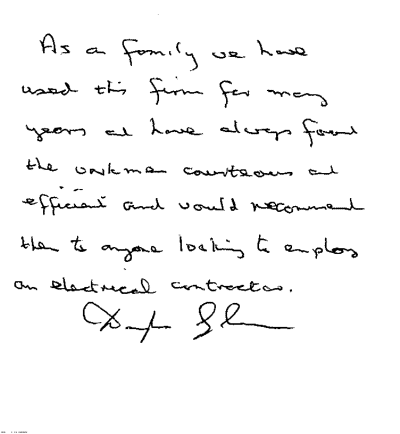 As a family we have
used this firm for many
years and have always found
the workmen courteous and
efficient and would recommend
them to anyone looking to employ
an electrical contractor.